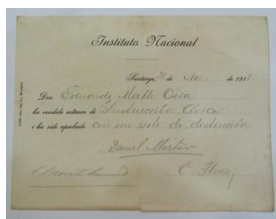 Instituto Nacional
Santiago, de de 191
Don Eduardo Matte Ossa
ha rendido exámen de Instrucción Cívica
i ha sido aprobado con un voto de distinción
Daniel Martner